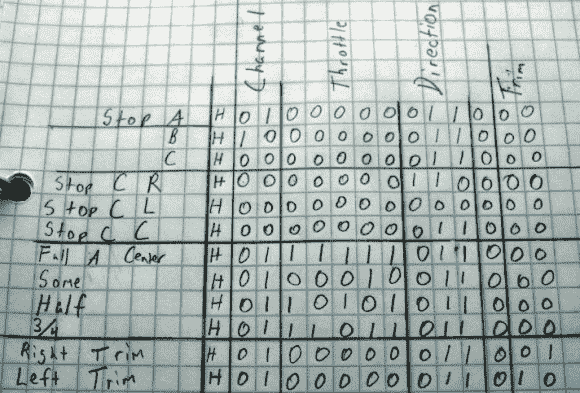 Channel Throttle Direction Trim
Stop A H 0 1 0 0 0 0 0 0 1 1 0 0 0
B H 1 0 0 0 0 0 0 0 1 1 0 0 0
C H 0 0 0 0 0 0 0 0 1 1 0 0 0
Stop C R H 0 0 0 0 0 0 0 1 1 0 0 0 0
Stop C L H 0 0 0 0 0 0 0 0 0 0 0 0 0
Stop C C H 0 0 0 0 0 0 0 0 1 1 0 0 0
Full A Center H 0 1 1 1 1 1 1 0 1 1 0 0 0
Some H 0 1 0 0 0 1 0 0 1 1 0 0 0
Half H 0 1 1 0 1 0 1 0 1 1 0 0 0
3/4 H 0 1 1 1 0 1 1 0 1 1 0 0 0
Right Trim H 0 1 0 0 0 0 0 0 1 1 0 0 1
Left Trim H 0 1 0 0 0 0 0 0 1 1 0 1 0